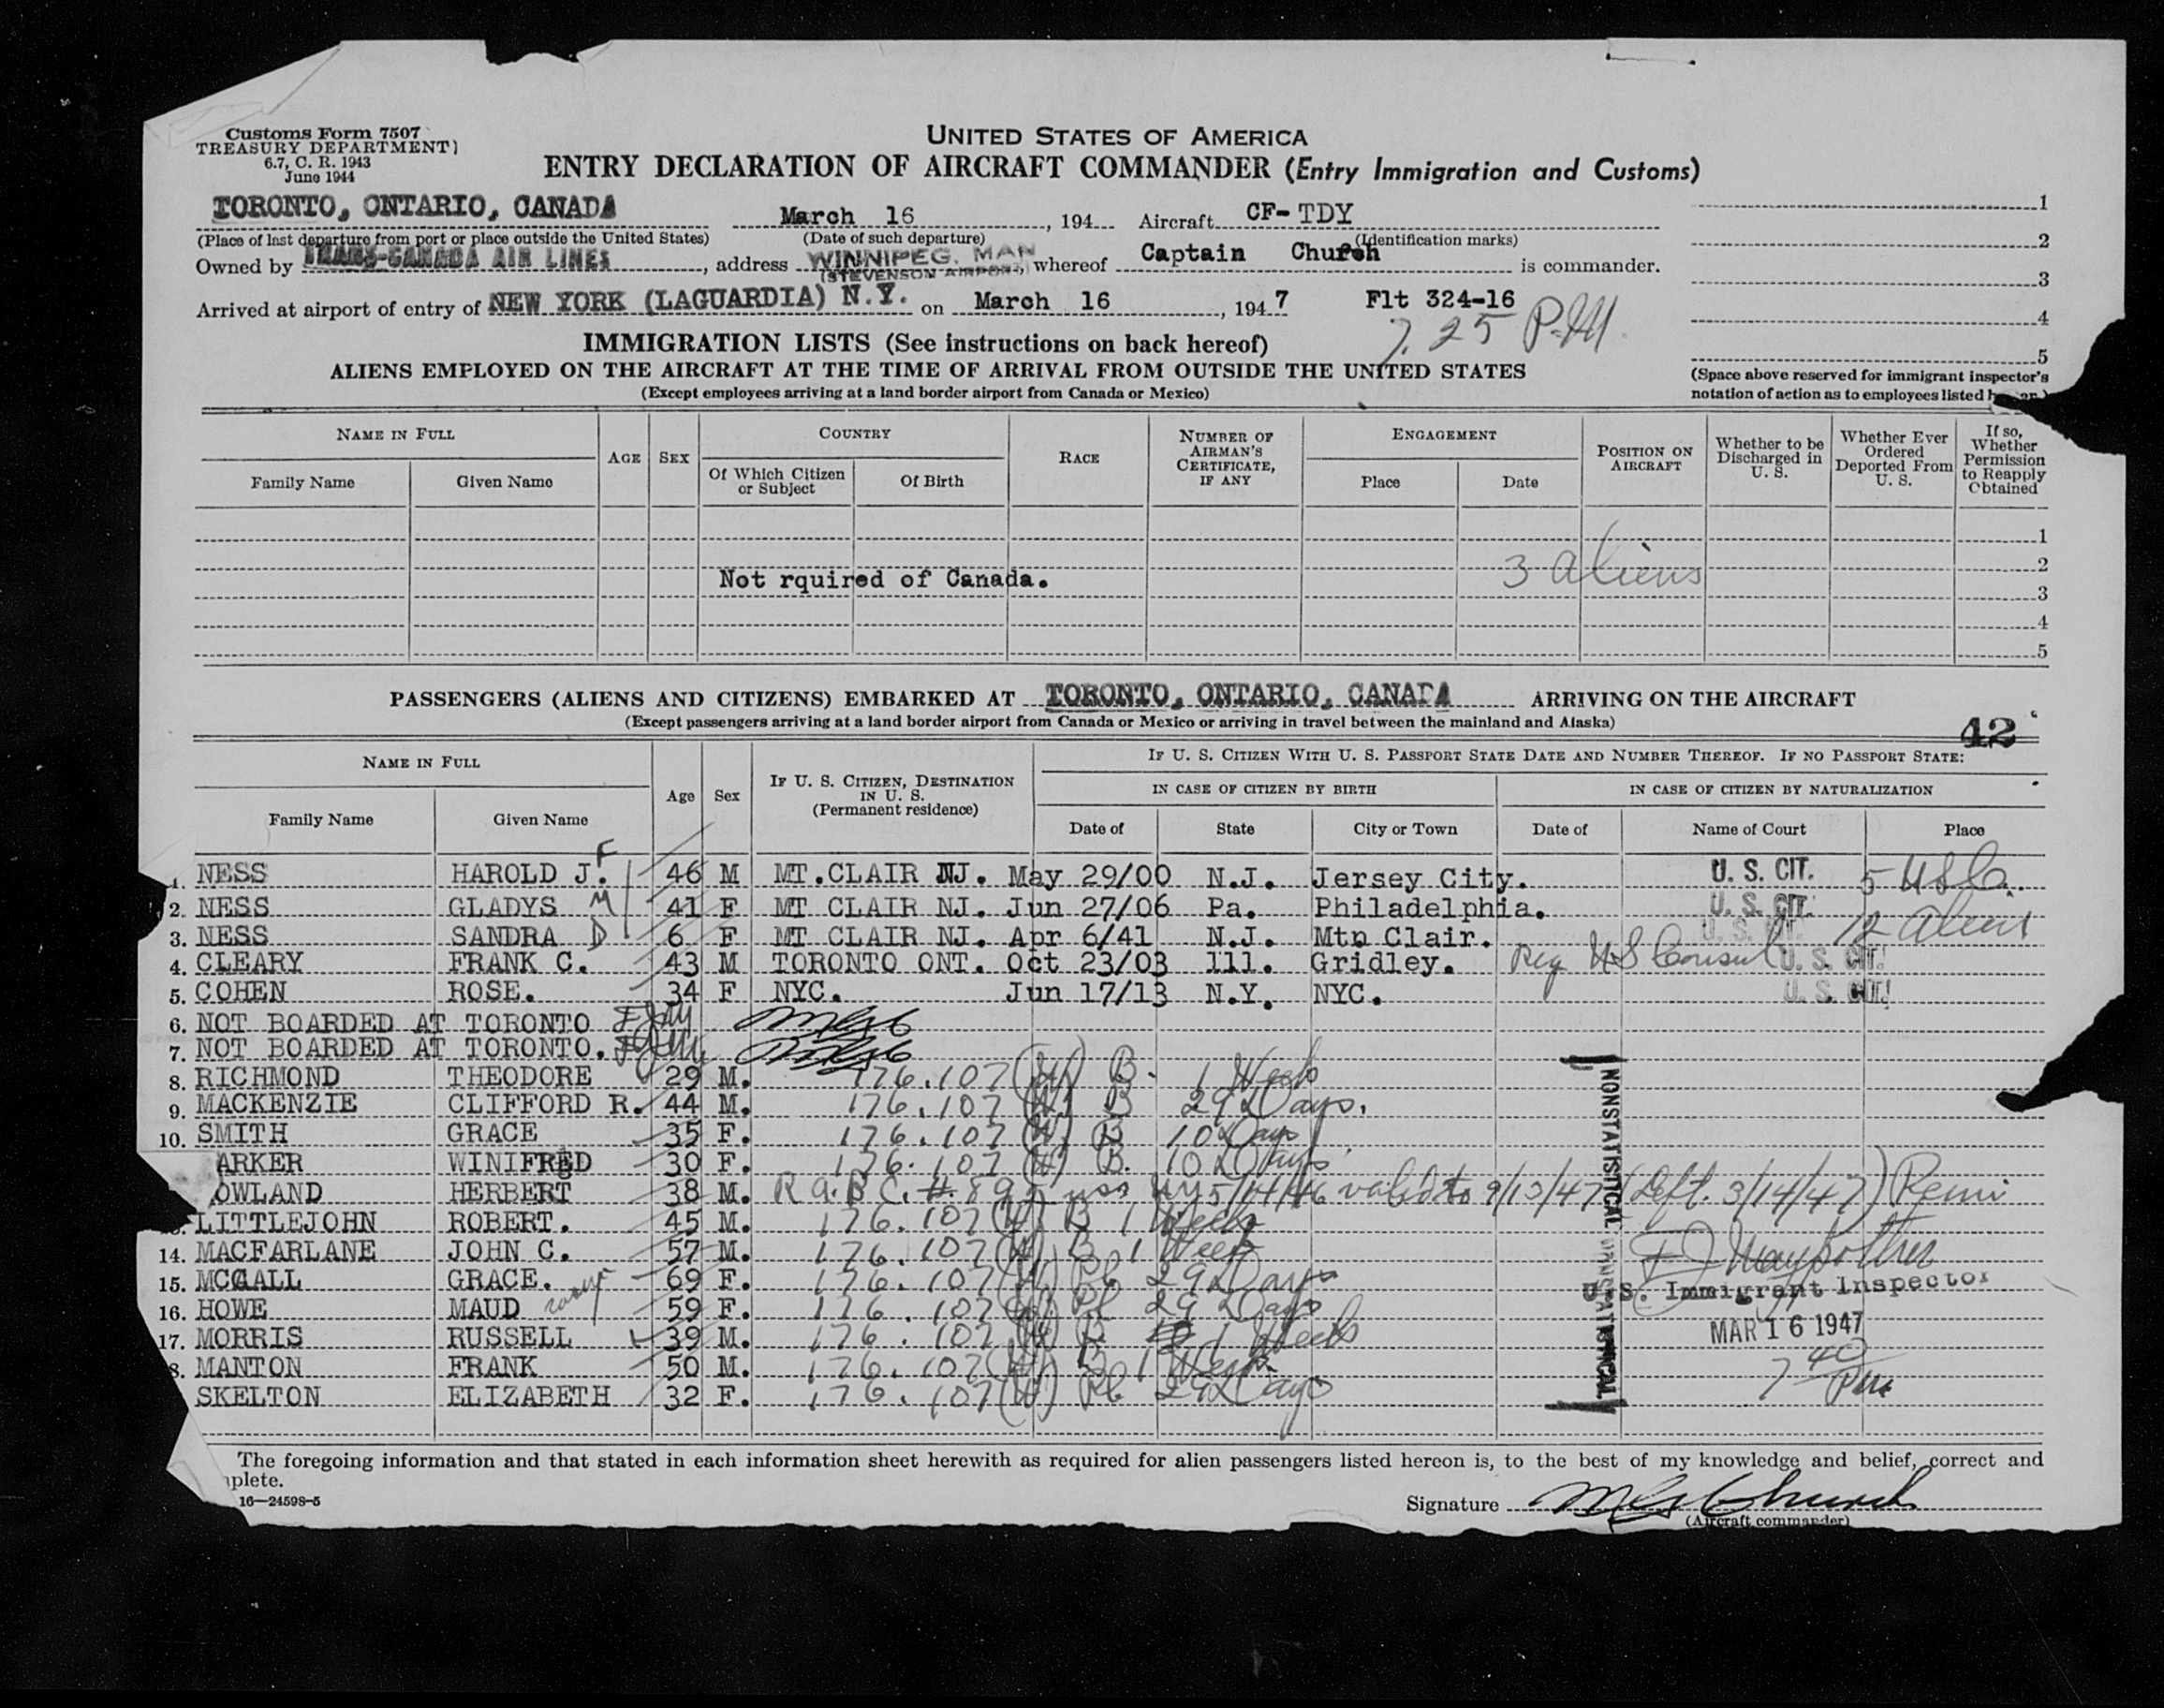 Customs Form 7507
TREASURY DEPARTMENT)
6.7, C. R. 1943
June 1944
UNITED STATES OF AMERICA
ENTRY DECLARATION OF AIRCRAFT COMMANDER (Entry Immigration and Customs)
TORONTO, ONTARIO, CANADA March 16, 194 Aircraft CF-TDY 1
(Place of last departure from port or place outside the United States) (Date of such departure) (Identification marks) 2
Owned by TRANS-CANADA AIR LINES, address WINNIPEG, MAN (STEVENSON AIRPORT), whereof Captain Church is commander. 3
Arrived at airport of entry of NEW YORK (LAGUARDIA) N.Y. on March 16, 1947 Flt 324-16 4
7.25 P.M. 5
IMMIGRATION LISTS (See instructions on back hereof)
ALIENS EMPLOYED ON THE AIRCRAFT AT THE TIME OF ARRIVAL FROM OUTSIDE THE UNITED STATES
(Except employees arriving at a land border airport from Canada or Mexico)
(Space above reserved for immigrant inspector's
notation of action as to employees listed
NAME IN FULL
Family Name Given Name
AGE SEX
COUNTRY
Of Which Citizen or Subject Of Birth
RACE
NUMBER OF AIRMAN'S CERTIFICATE, IF ANY
ENGAGEMENT
Place Date
POSITION ON AIRCRAFT
Whether to be Discharged in U. S.
Whether Ever Ordered Deported From U. S.
If so, Whether Permission to Reapply Obtained
1
2
Not rquired of Canada. 3 aliens
3
4
5
PASSENGERS (ALIENS AND CITIZENS) EMBARKED AT TORONTO, ONTARIO, CANADA ARRIVING ON THE AIRCRAFT
(Except passengers arriving at a land border airport from Canada or Mexico or arriving in travel between the mainland and Alaska)
42
NAME IN FULL
Family Name Given Name
Age Sex
IF U. S. CITIZEN, DESTINATION IN U. S. (Permanent residence)
IF U. S. CITIZEN WITH U. S. PASSPORT STATE DATE AND NUMBER THEREOF. IF NO PASSPORT STATE:
IN CASE OF CITIZEN BY BIRTH IN CASE OF CITIZEN BY NATURALIZATION
Date of State City or Town Date of Name of Court Place
1. NESS HAROLD J. F 46 M MT.CLAIR NJ. May 29/00 N.J. Jersey City. U. S. CIT. 5 USC.
2. NESS GLADYS M 41 F MT CLAIR NJ. Jun 27/06 Pa. Philadelphia. U. S. CIT.
3. NESS SANDRA D 6 F MT CLAIR NJ. Apr 6/41 N.J. Mtn Clair. U. S. CIT. 12 Aliens
4. CLEARY FRANK C. 43 M TORONTO ONT. Oct 23/03 Ill. Gridley. Reg US Consul U. S. CIT.
5. COHEN ROSE. 34 F NYC. Jun 17/13 N.Y. NYC. U. S. CIT.
6. NOT BOARDED AT TORONTO
7. NOT BOARDED AT TORONTO.
8. RICHMOND THEODORE 29 M. 176.107 (W) B. 1 Week
9. MACKENZIE CLIFFORD R. 44 M. 176.107 (W) B 29 Days.
10. SMITH GRACE 35 F. 176.107 (W) B 10 Days
ARKER WINIFRED 30 F. 176.107 (W) B. 10 Days
OWLAND HERBERT 38 M. valid to 9/13/47 (Left. 3/14/47)
LITTLEJOHN ROBERT. 45 M. 176.107 (W) B 1 Week
14. MACFARLANE JOHN C. 57 M. 176.107 (W) B 1 Week
15. MCCALL GRACE. 69 F. 176.107 (W) Pl 29 Days
U.S. Immigrant Inspector
16. HOWE MAUD 59 F. 176.107 (W) Pl 29 Days
17. MORRIS RUSSELL 39 M. 176.107 (W) B 1 Week
MAR 16 1947
8. MANTON FRANK 50 M. 176.107 (W) B 1 Week
SKELTON ELIZABETH 32 F. 176.107 (W) Pl 29 Days
7 40 Pm
NONSTATISTICAL
The foregoing information and that stated in each information sheet herewith as required for alien passengers listed hereon is, to the best of my knowledge and belief, correct and
plete.
16—24598-5
Signature Church
(Aircraft commander)